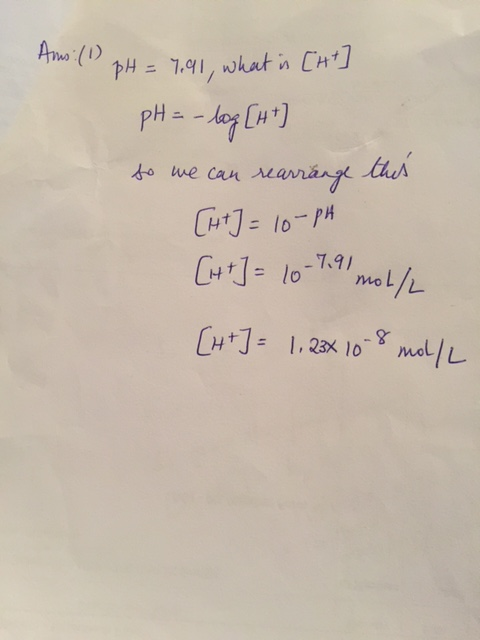 Ans:(1) pH = 7.91, what is [H+]
pH = - log [H+]
so we can rearrange this
[H+] = 10^-pH
[H+] = 10^-7.91 mol/L
[H+] = 1.23x10^-8 mol/L